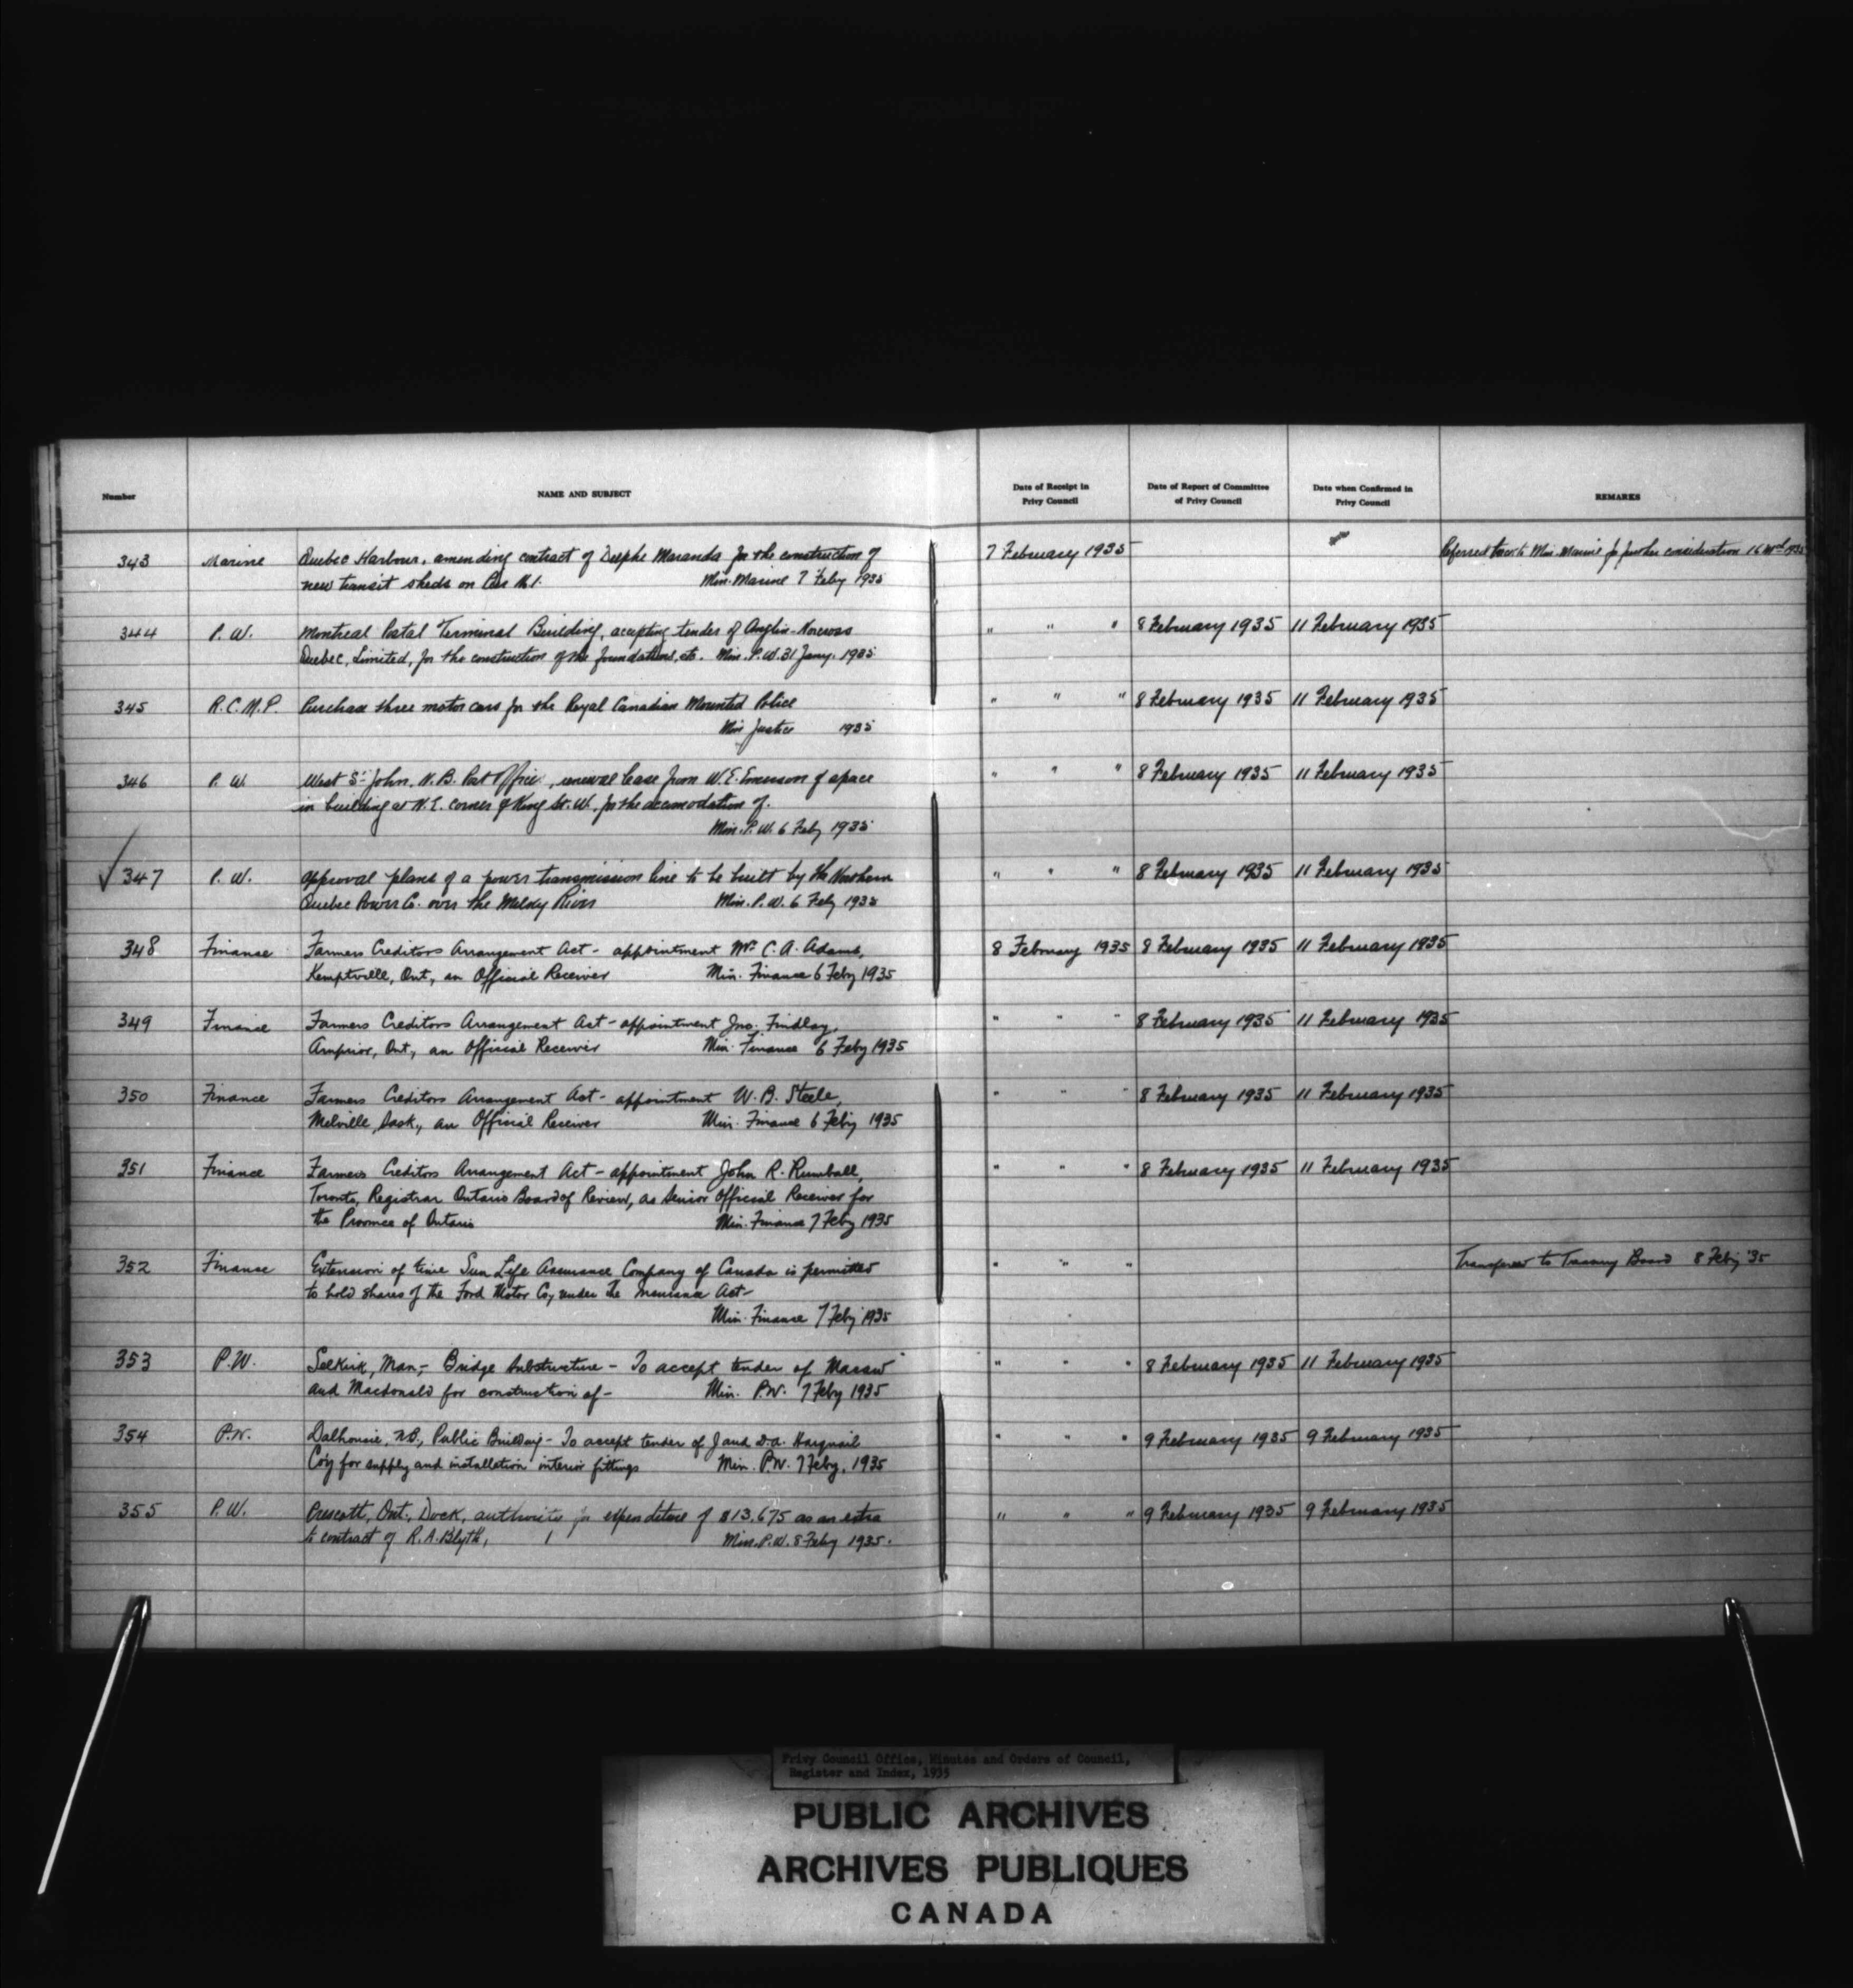 Number NAME AND SUBJECT Date of Receipt in Privy Council Date of Report of Committee of Privy Council Date when Confirmed in Privy Council REMARKS
343 Marine Quebec Harbour, amending contract of Delphe Maranda for the construction of 7 February 1935 Referred back to Min. Marine for further consideration 16 1935
new transit sheds on Pier No 1. Min. Marine 7 Feby 1935
344 P. W. Montreal Postal Terminal Building, accepting tender of Anglin-Norcross " " " 8 February 1935 11 February 1935
Quebec, Limited, for the construction of the foundations, etc. Min. P.W. 31 Jany. 1935
345 R.C.M.P. Purchase three motor cars for the Royal Canadian Mounted Police " " " 8 February 1935 11 February 1935
Min Justice 1935
346 P. W. West St John, N.B. Post Office, renewal lease from W.E. Emerson of space " " " 8 February 1935 11 February 1935
in building at N.E. corner of King St. W., for the accomodation of.
Min. P.W. 6 Feby 1935
✓ 347 P. W. approval plans of a power transmission line to be built by the Northern " " " 8 February 1935 11 February 1935
Quebec Power Co. over the River Min. P.W. 6 Feby 1935
348 Finance Farmers Creditors Arrangement Act - appointment Mr. C. A. Adams, 8 February 1935 8 February 1935 11 February 1935
Kemptville, Ont., an Official Receiver Min. Finance 6 Feby 1935
349 Finance Farmers Creditors Arrangement Act - appointment Jno. Findlay, " " " 8 February 1935 11 February 1935
Arnprior, Ont., an Official Receiver Min. Finance 6 Feby 1935
350 Finance Farmers Creditors Arrangement Act - appointment W. B. Steele, " " " 8 February 1935 11 February 1935
Melville, Sask., an Official Receiver Min. Finance 6 Feby 1935
351 Finance Farmers Creditors Arrangement Act - appointment John R. Rumball, " " " 8 February 1935 11 February 1935
Toronto, Registrar Ontario Board of Review, as Senior Official Receiver for
the Province of Ontario Min. Finance 7 Feby 1935
352 Finance Extension of time Sun Life Assurance Company of Canada is permitted " " " Transferred to Treasury Board 8 Feby '35
to hold shares of the Ford Motor Coy under the Insurance Act -
Min. Finance 7 Feby 1935
353 P.W. Selkirk, Man, - Bridge Substructure - To accept tender of Macaw " " " 8 February 1935 11 February 1935
and Macdonald for construction of - Min. P.W. 7 Feby 1935
354 P.W. Dalhousie, N.B., Public Building - To accept tender of J and D.A. Harquail " " " 9 February 1935 9 February 1935
Co'y for supply and installation interior fittings Min. P.W. 7 Feby, 1935
355 P.W. Prescott, Ont., Dock, authority for expenditure of $13,675 as an extra " " " 9 February 1935 9 February 1935
to contract of R.A. Blyth, Min. P.W. 8 Feby 1935.
Privy Council Office, Minutes and Orders of Council,
Register and Index, 1935
PUBLIC ARCHIVES
ARCHIVES PUBLIQUES
CANADA